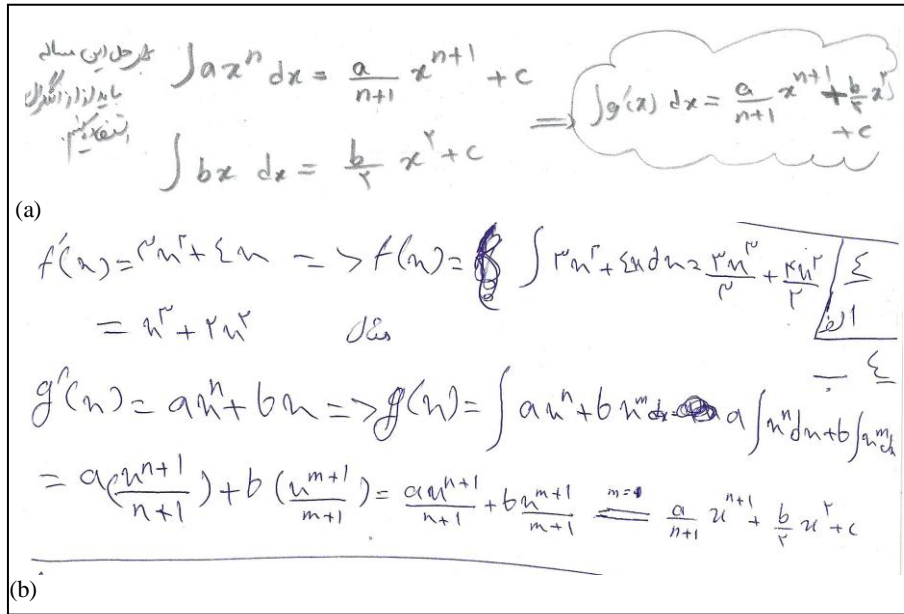 حل این مساله
باید از انتگرال
استفاده کنیم.
∫ax^n dx = a/(n+1) x^(n+1) + c
∫bx dx = b/۲ x^۲ + c
⇒ ∫g'(x) dx = a/(n+1) x^(n+1) + b/۲ x^۲
+ c
(a)
٤ الف
f'(x) = ۳x^۲ + ٤x => f(x) = ∫۳x^۲ + ٤x dx = ۳x^۳/۳ + ۴x^۲/۲
= x^۳ + ۲x^۲
٤ ب
g'(x) = ax^n + bx => g(x) = ∫ax^n + bx^m dx = a∫x^n dx + b∫x^m dx
= a(x^(n+1)/(n+1)) + b(x^(m+1)/(m+1)) = ax^(n+1)/(n+1) + bx^(m+1)/(m+1) =(m=1)= a/(n+1) x^(n+1) + b/۲ x^۲ + c
(b)